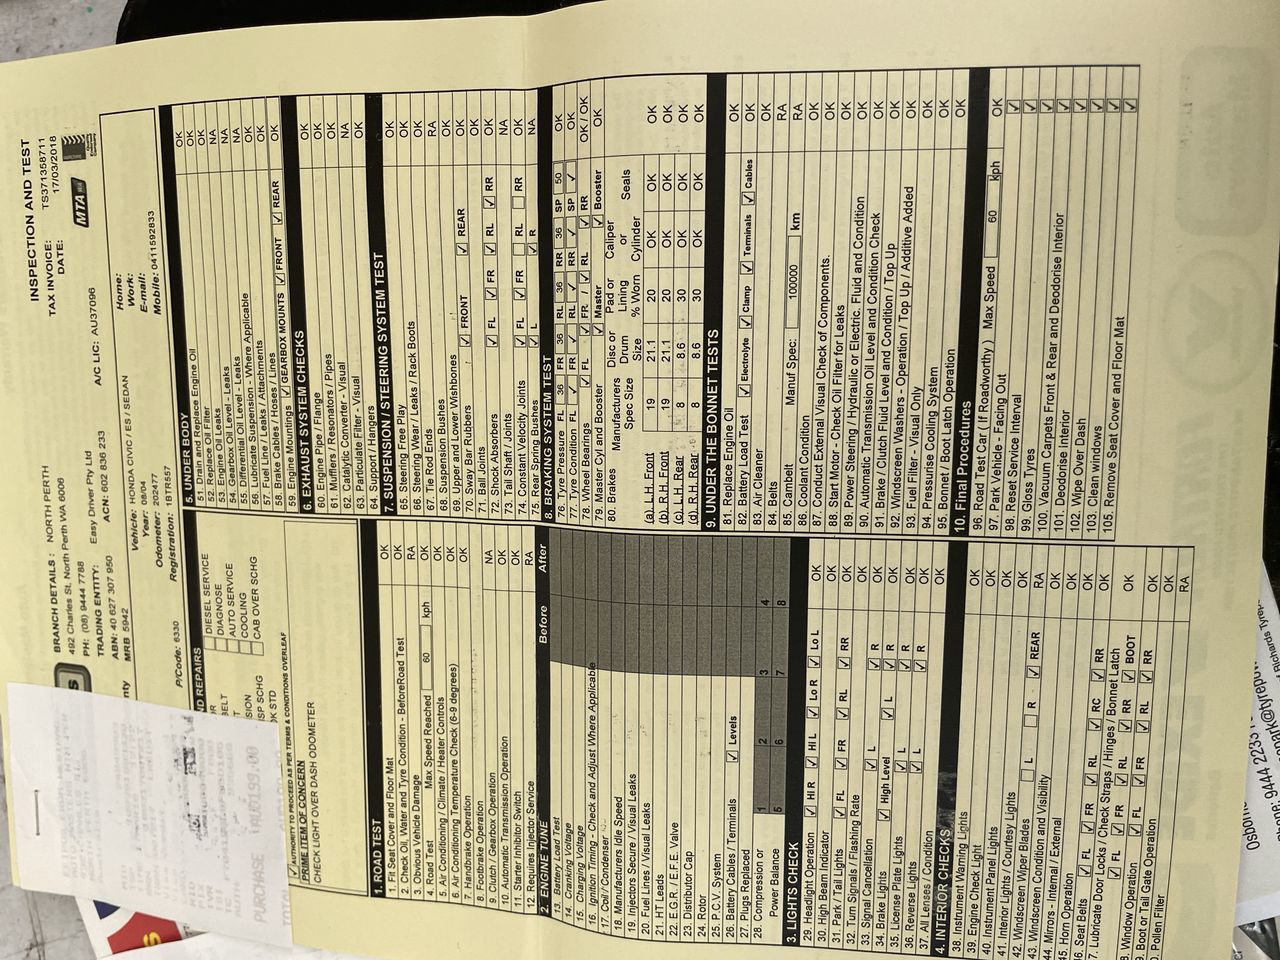 INSPECTION AND TEST
TAX INVOICE: TS371358711
DATE: 17/03/2018
MTA
BRANCH DETAILS : NORTH PERTH
492 Charles St, North Perth WA 6006
PH: (08) 9444 7788
TRADING ENTITY: Easy Driver Pty Ltd
ABN: 40 627 307 950 ACN: 602 836 233 A/C LIC: AU37096
MRB 5942
Vehicle: HONDA CIVIC / ES / SEDAN
Year: 08/04
Odometer: 202477
Registration: 1BTR557
Home:
Work:
E-mail:
Mobile: 0411592833
P/Code: 6330
ND REPAIRS
DIESEL SERVICE
DIAGNOSE
AUTO SERVICE
COOLING
CAB OVER SCHG
AUTHORITY TO PROCEED AS PER TERMS & CONDITIONS OVERLEAF
PRIME ITEM OF CONCERN
CHECK LIGHT OVER DASH ODOMETER
PURCHASE AUD199.00
1. ROAD TEST
1. Fit Seat Cover and Floor Mat OK
2. Check Oil, Water and Tyre Condition - BeforeRoad Test OK
3. Obvious Vehicle Damage RA
4. Road Test Max Speed Reached 60 kph OK
5. Air Conditioning / Climate / Heater Controls OK
6. Air Conditioning Temperature Check (6-9 degrees) OK
7. Handbrake Operation OK
8. Footbrake Operation
9. Clutch / Gearbox Operation NA
10. Automatic Transmission Operation OK
11. Starter Inhibitor Switch OK
12. Requires Injector Service RA
2. ENGINE TUNE Before After
13. Battery Load Test
14. Cranking Voltage
15. Charging Voltage
16. Ignition Timing - Check and Adjust Where Applicable
17. Coil / Condenser
18. Manufacturers Idle Speed
19. Injectors Secure / Visual Leaks
20. Fuel Lines / Visual Leaks
21. HT Leads
22. E.G.R. / E.F.E. Valve
23. Distributor Cap
24. Rotor
25. P.C.V. System
26. Battery Cables / Terminals ✓ Levels
27. Plugs Replaced
28. Compression or 1 2 3 4
Power Balance 5 6 7 8
3. LIGHTS CHECK
29. Headlight Operation ✓ HI R ✓ HI L ✓ Lo R ✓ Lo L OK
30. High Beam Indicator OK
31. Park / Tail Lights ✓ FL ✓ FR ✓ RL ✓ RR OK
32. Turn Signals / Flashing Rate OK
33. Signal Cancellation ✓ L ✓ R OK
34. Brake Lights ✓ High Level ✓ L ✓ R OK
35. License Plate Lights ✓ L ✓ R OK
36. Reverse Lights ✓ L ✓ R OK
37. All Lenses / Condition OK
4. INTERIOR CHECKS
38. Instrument Warning Lights OK
39. Engine Check Light OK
40. Instrument Panel Lights OK
41. Interior Lights / Courtesy Lights OK
42. Windscreen Wiper Blades L R ✓ REAR RA
43. Windscreen Condition and Visibility OK
44. Mirrors - Internal / External OK
45. Horn Operation OK
46. Seat Belts ✓ FL ✓ FR ✓ RL ✓ RC ✓ RR OK
7. Lubricate Door Locks / Check Straps / Hinges / Bonnet Latch
✓ FL ✓ FR ✓ RL ✓ RR ✓ BOOT OK
8. Window Operation ✓ FL ✓ FR ✓ RL ✓ RR OK
9. Boot or Tail Gate Operation OK
0. Pollen Filter RA
5. UNDER BODY
51. Drain and Replace Engine Oil OK
52. Replace Oil Filter OK
53. Engine Oil Leaks OK
54. Gearbox Oil Level - Leaks NA
55. Differential Oil Level - Leaks NA
56. Lubricate Suspension - Where Applicable NA
57. Fuel Line / Leaks / Attachments OK
58. Brake Cables / Hoses / Lines OK
59. Engine Mountings ✓ GEARBOX MOUNTS ✓ FRONT ✓ REAR OK
6. EXHAUST SYSTEM CHECKS
60. Engine Pipe / Flange OK
61. Mufflers / Resonators / Pipes OK
62. Catalytic Converter - Visual OK
63. Particulate Filter - Visual NA
64. Support / Hangers OK
7. SUSPENSION / STEERING SYSTEM TEST
65. Steering Free Play OK
66. Steering Wear / Leaks / Rack Boots OK
67. Tie Rod Ends OK
68. Suspension Bushes RA
69. Upper and Lower Wishbones OK
70. Sway Bar Rubbers ✓ FRONT ✓ REAR OK
71. Ball Joints OK
72. Shock Absorbers ✓ FL ✓ FR ✓ RL ✓ RR OK
73. Tail Shaft / Joints NA
74. Constant Velocity Joints ✓ FL ✓ FR RL RR OK
75. Rear Spring Bushes ✓ L ✓ R NA
8. BRAKING SYSTEM TEST
76. Tyre Pressure FL 36 FR 36 RL 36 RR 36 SP 50 OK
77. Tyre Condition FL ✓ FR ✓ RL ✓ RR ✓ SP ✓ OK
78. Wheel Bearings ✓ FL ✓ FR / ✓ RL ✓ RR OK / OK
79. Master Cyl and Booster ✓ Master ✓ Booster OK
80. Brakes Manufacturers Spec Size Disc or Drum Size Pad or Lining % Worn Caliper or Cylinder Seals
(a) L.H. Front 19 21.1 20 OK OK OK
(b) R.H. Front 19 21.1 20 OK OK OK
(c) L.H. Rear 8 8.6 30 OK OK OK
(d) R.H. Rear 8 8.6 30 OK OK OK
9. UNDER THE BONNET TESTS
81. Replace Engine Oil OK
82. Battery Load Test ✓ Electrolyte ✓ Clamp ✓ Terminals ✓ Cables OK
83. Air Cleaner OK
84. Belts RA
85. Cambelt Manuf Spec: 100000 km RA
86. Coolant Condition OK
87. Conduct External Visual Check of Components. OK
88. Start Motor - Check Oil Filter for Leaks OK
89. Power Steering / Hydraulic or Electric. Fluid and Condition OK
90. Automatic Transmission Oil Level and Condition Check OK
91. Brake / Clutch Fluid Level and Condition / Top Up OK
92. Windscreen Washers - Operation / Top Up / Additive Added OK
93. Fuel Filter - Visual Only OK
94. Pressurise Cooling System OK
95. Bonnet / Boot Latch Operation OK
10. Final Procedures
96. Road Test Car ( If Roadworthy ) Max Speed 60 kph OK
97. Park Vehicle - Facing Out ✓
98. Reset Service Interval ✓
99. Gloss Tyres ✓
100. Vacuum Carpets Front & Rear and Deodorise Interior ✓
101. Deodorise Interior ✓
102. Wipe Over Dash ✓
103. Clean windows ✓
105. Remove Seat Cover and Floor Mat ✓